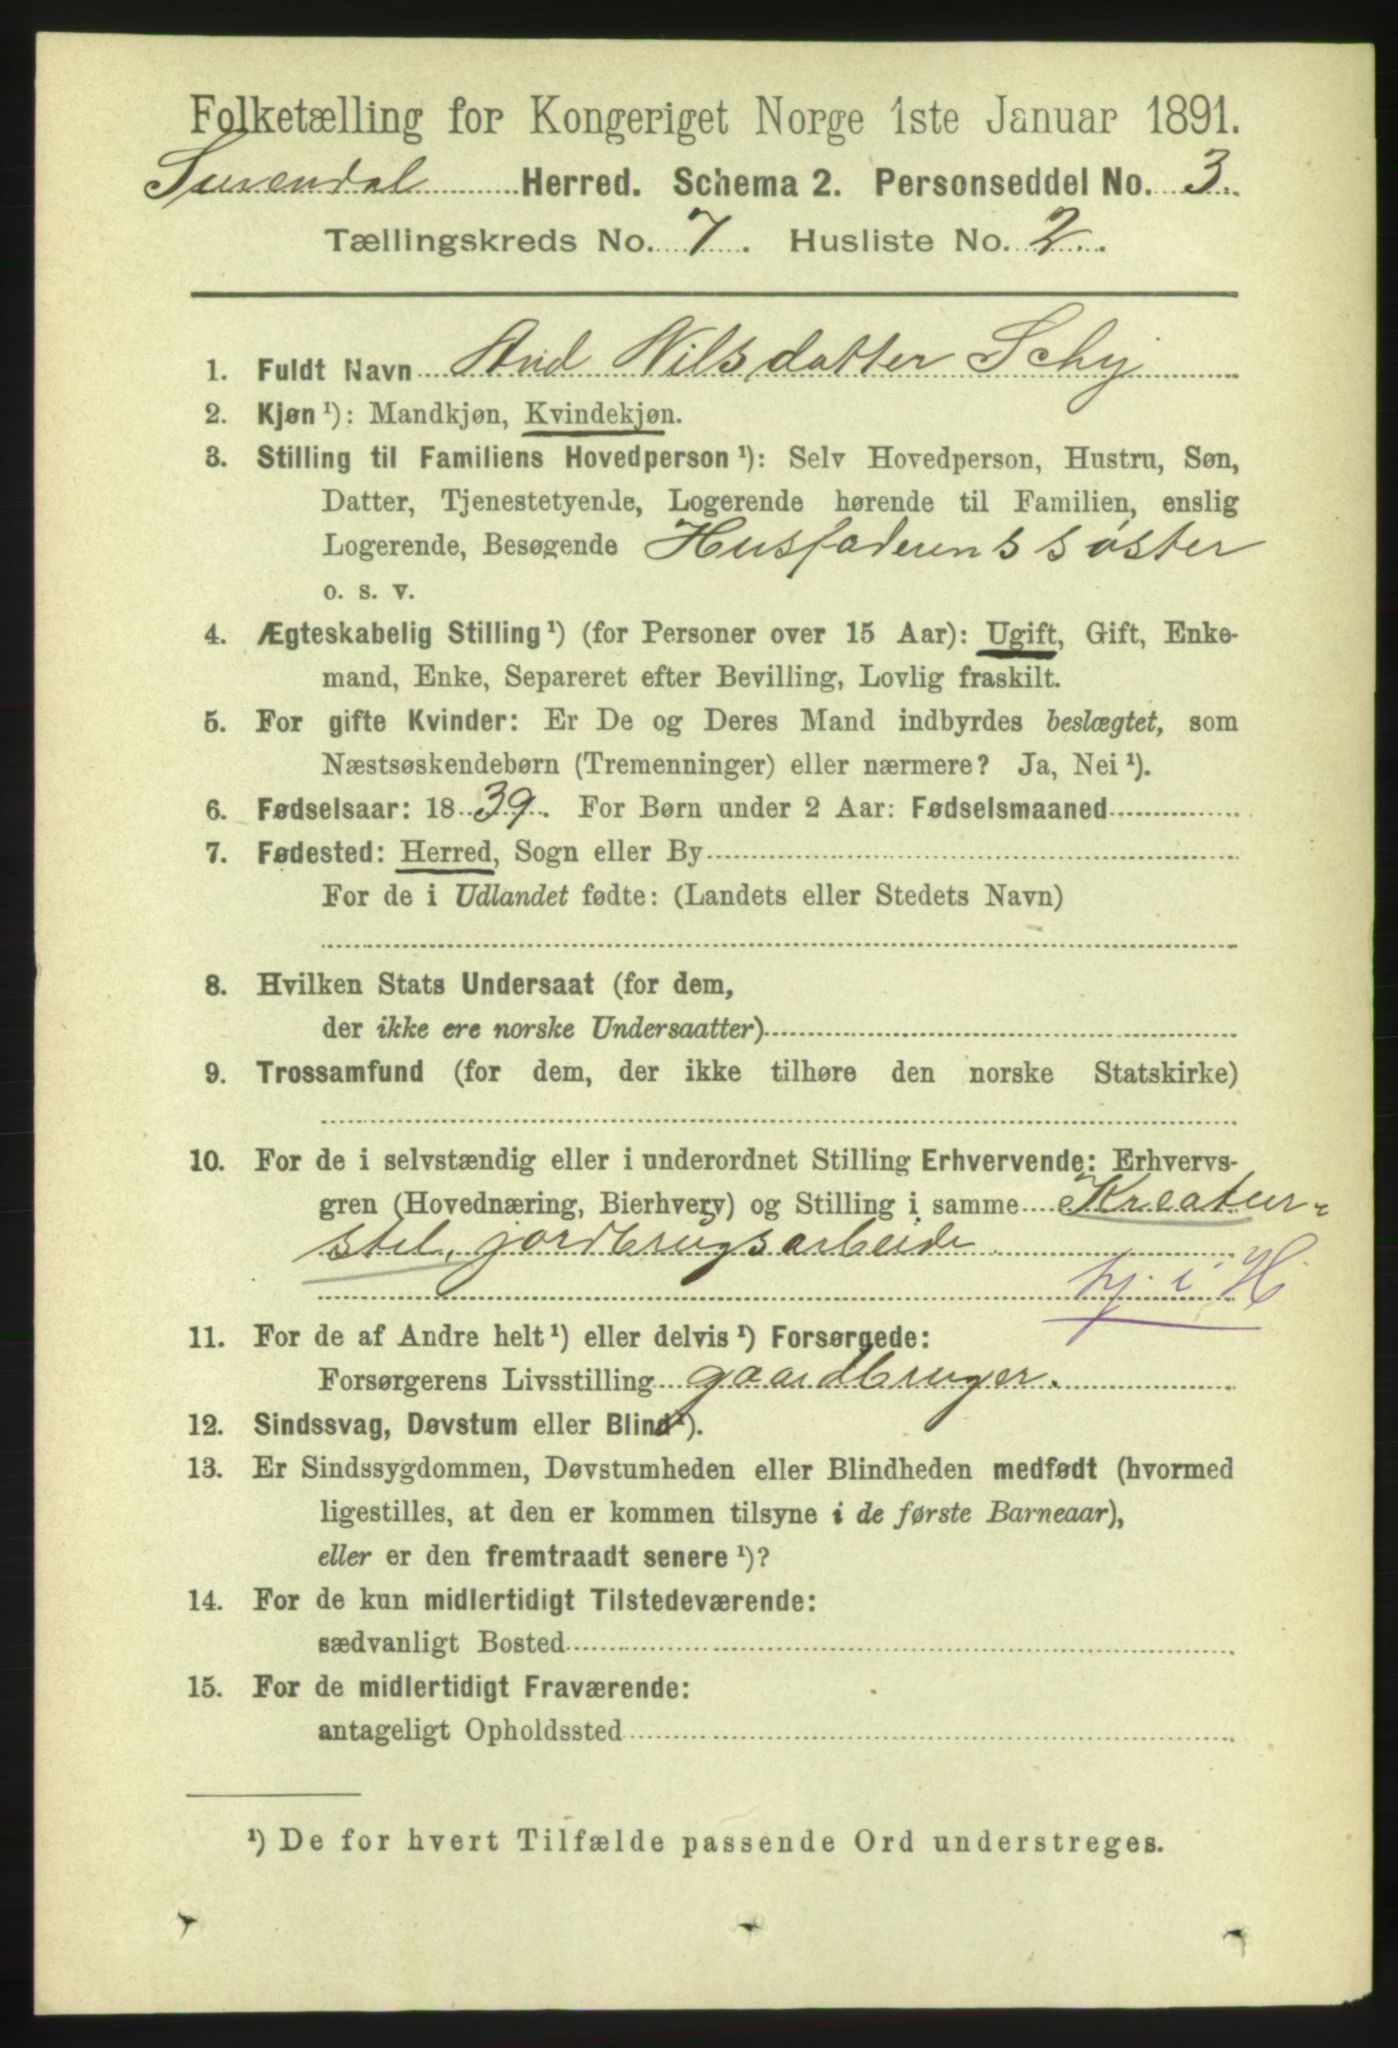 Folketælling for Kongeriget Norge 1ste Januar 1891.
Surendal Herred. Schema 2. Personseddel No. 3.
Tællingskreds No. 7. Husliste No. 2.
1. Fuldt Navn And Nilsdatter Schy
2. Kjøn ¹): Mandkjøn, Kvindekjøn.
3. Stilling til Familiens Hovedperson ¹): Selv Hovedperson, Hustru, Søn,
Datter, Tjenestetyende, Logerende hørende til Familien, enslig
Logerende, Besøgende Husfaderens søster
o. s. v.
4. Ægteskabelig Stilling ¹) (for Personer over 15 Aar): Ugift, Gift, Enke-
mand, Enke, Separeret efter Bevilling, Lovlig fraskilt.
5. For gifte Kvinder: Er De og Deres Mand indbyrdes beslægtet, som
Næstsøskendebørn (Tremenninger) eller nærmere? Ja, Nei ¹).
6. Fødselsaar: 1839. For Børn under 2 Aar: Fødselsmaaned
7. Fødested: Herred, Sogn eller By
For de i Udlandet fødte: (Landets eller Stedets Navn)
8. Hvilken Stats Undersaat (for dem,
der ikke ere norske Undersaatter)
9. Trossamfund (for dem, der ikke tilhøre den norske Statskirke)
10. For de i selvstændig eller i underordnet Stilling Erhvervende: Erhvervs-
gren (Hovednæring, Bierhverv) og Stilling i samme Kreatur-
stel, jordbrugsarbeide.
hj. i H
11. For de af Andre helt ¹) eller delvis ¹) Forsørgede:
Forsørgerens Livsstilling gaardbruger.
12. Sindssvag, Døvstum eller Blind ¹).
13. Er Sindssygdommen, Døvstumheden eller Blindheden medfødt (hvormed
ligestilles, at den er kommen tilsyne i de første Barneaar),
eller er den fremtraadt senere ¹)?
14. For de kun midlertidigt Tilstedeværende:
sædvanligt Bosted
15. For de midlertidigt Fraværende:
antageligt Opholdssted
¹) De for hvert Tilfælde passende Ord understreges.